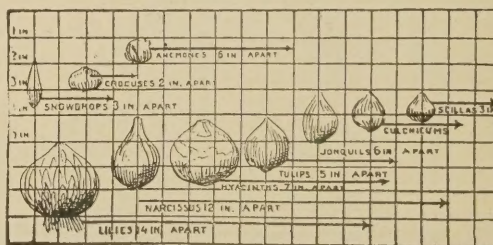 1 IN
2 IN
ANEMONES 6 IN APART
3 IN
CROCUSES 2 IN. APART
4 IN.
SNOWDROPS 3 IN. APART
SCILLAS 3 IN
CULCHICUMS
JONQUILS 6 IN APART
TULIPS 5 IN APART
HYACINTHS 7 IN. APART
NARCISSUS 12 IN. APART
LILIES 14 IN. APART